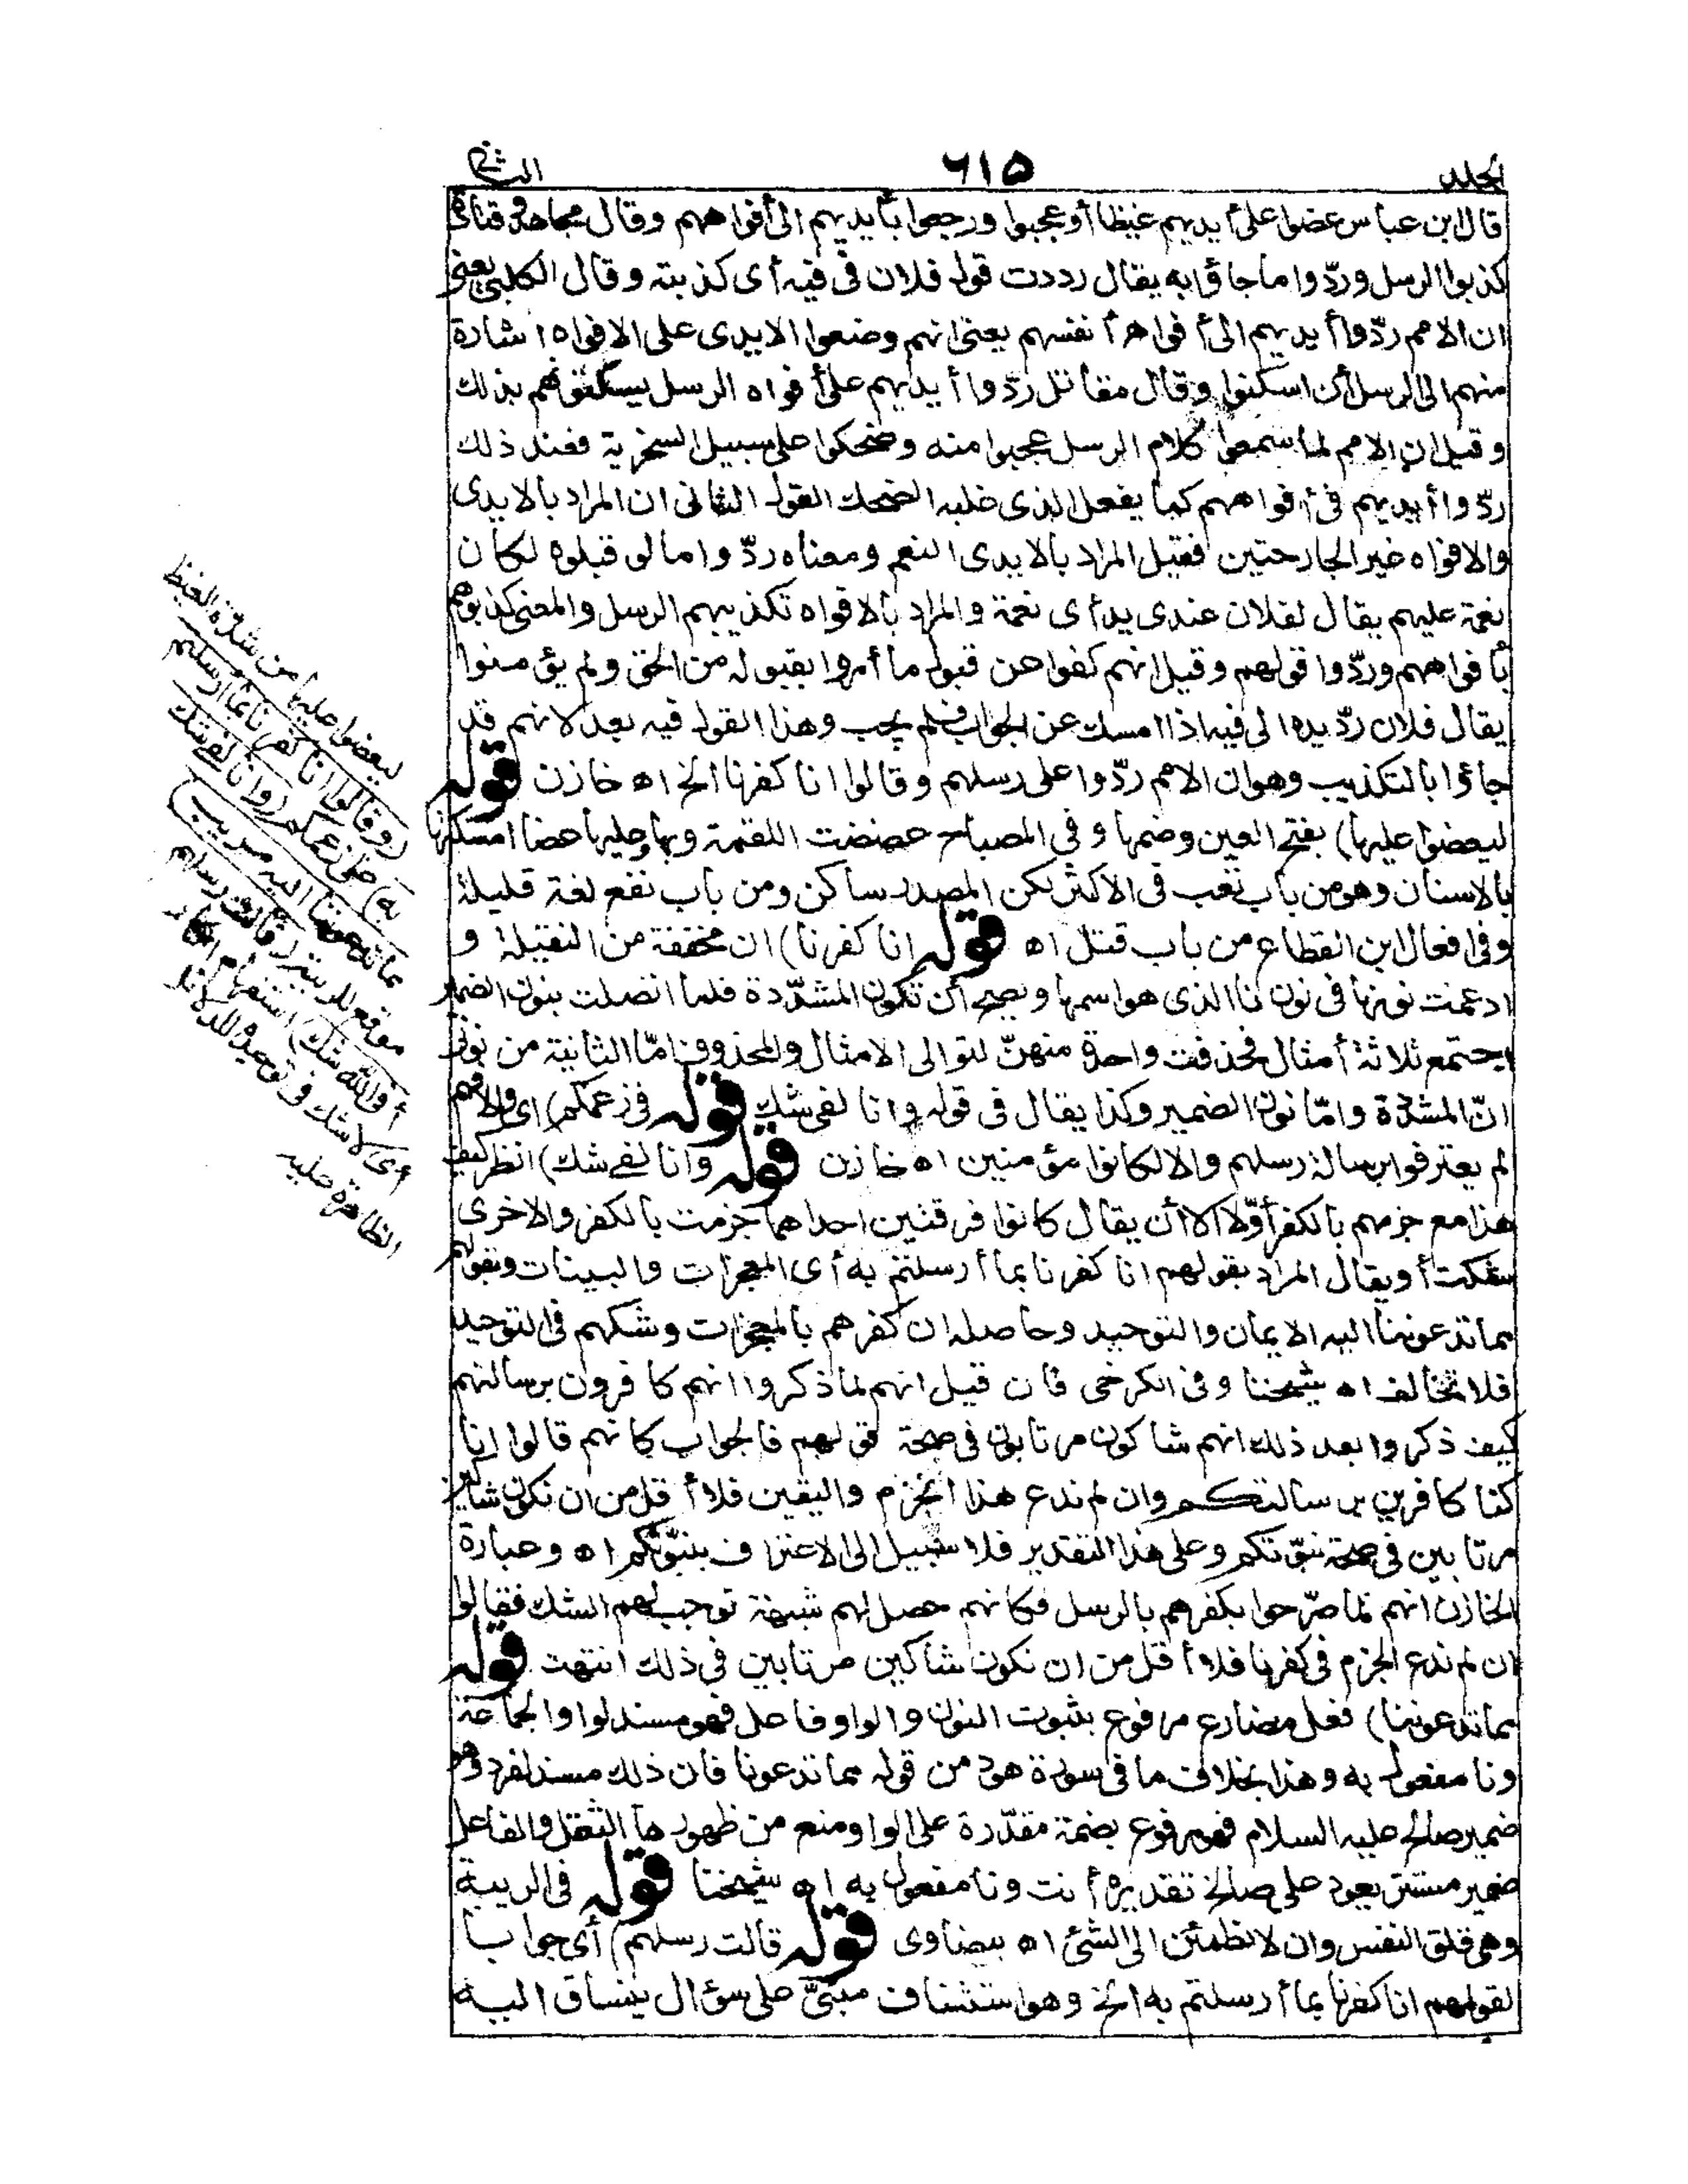 المجلد ٦١٥ الثاني
قال ابن عباس عضوا على أيديهم غيظا أو عجبوا ورجعوا بأيديهم الى أفواههم وقال مجاهد وقتادة
كذبوا الرسل وردّوا ما جاؤا به يقال رددت قول فلان فى فيه أى كذبته وقال الكلبى يعنى
ان الامم ردّوا أيديهم الى أفواه أنفسهم يعنى انهم وضعوا الايدى على الافواه اشارة
منهم الى الرسل أن اسكتوا وقال مقاتل ردّوا أيديهم على أفواه الرسل يسكتونهم بذلك
وقيل ان الامم لما سمعوا كلام الرسل عجبوا منه وضحكوا على سبيل السخرية فعند ذلك
ردّوا أيديهم فى أفواههم كما يفعل الذى غلبه الضحك القول الثانى ان المراد بالايدى
والافواه غير الجارحتين فقيل المراد بالايدى النعم ومعناه ردّوا ما لو قبلوه لكان
نعمة عليهم يقال لفلان عندى يد أى نعمة والمراد بالافواه تكذيبهم الرسل والمعنى كذبوهم
بأفواههم وردّوا قولهم وقيل انهم كفوا عن قبول ما أمروا بقبوله من الحق ولم يؤمنوا
يقال فلان ردّ يده الى فيه اذا امسك عن الجواب فلم يجب وهذا القول فيه بعد لانهم قد
جاؤا بالتكذيب وهو ان الامم ردّوا على رسلهم وقالوا انا كفرنا الخ اه خازن قوله
ليعضوا عليها) بفتح العين وضمها وفى المصباح عضضت اللقمة وبها وعليها عضا امسكتها
بالاسنان وهو من باب تعب فى الاكثر لكن المصدر ساكن ومن باب نفع لغة قليلة
وفى افعال ابن القطاع من باب قتل اه قوله انا كفرنا) ان مخففة من الثقيلة و
ادغمت نونها فى نون نا الذى هو اسمها ويصح أن تكون المشدّدة فلما اتصلت بنون الضمير
اجتمع ثلاثة أمثال فحذفت واحدة منهنّ لتوالى الامثال والمحذوف امّا الثانية من نونى
انّ المشدّدة وامّا نون الضمير وكذا يقال فى قوله وانا لفى شك قوله فى زعمكم) اى والا فهم
لم يعترفوا برسالة رسلهم والا لكانوا مؤمنين اه خازن قوله وانا لفى شك) انظر كيف
هذا مع جزمهم بالكفر أوّلا الا أن يقال كانوا فرقتين احداهما جزمت بالكفر والاخرى
شكت أو يقال المراد بقولهم انا كفرنا بما أرسلتم به أى المعجزات والبينات وبقولهم
مما تدعوننا اليه الايمان والتوحيد وحاصله ان كفرهم بالمعجزات وشكهم فى التوحيد
فلا تخالف اه شيخنا وفى الكرخى فان قيل انهم لما ذكروا انهم كافرون برسالتهم
كيف ذكروا بعد ذلك انهم شاكون مرتابون فى صحة قولهم فالجواب كانهم قالوا انا
كنا كافرين برسالتكم وان لم ندع هذا الجزم واليقين فلا أقل من ان نكون شاكين
مرتابين فى صحة نبوّتكم وعلى هذا التقدير فلا سبيل الى الاعتراف بنبوّتكم اه وعبارة
الخازن انهم لما صرّحوا بكفرهم بالرسل فكانهم حصل لهم شبهة توجب لهم الشك فقالوا
ان لم ندع الجزم فى كفرنا فلا أقل من ان نكون شاكين مرتابين فى ذلك انتهت قوله
مما تدعوننا) فعل مضارع مرفوع بثبوت النون والواو فاعل فهو مسند لواو الجماعة
ونا مفعول به وهذا بخلاف ما فى سورة هود من قوله مما تدعونا فان ذلك مسند لمفرد وهو
ضمير صالح عليه السلام فهو مرفوع بضمة مقدّرة على الواو ومنع من ظهورها الثقل والفاعل
ضمير مستتر يعود على صالح تقديره أنت ونا مفعول به اه شيخنا قوله فى الريبة
وهى قلق النفس وان لا تطمئن الى الشئ اه بيضاوى قوله قالت رسلهم) أى جوابا
لقولهم انا كفرنا بما أرسلتم به الخ وهو استئناف مبنىّ على سؤال ينساق اليه
ليعضوا عليها من شدة الغيظ
(وقالوا انا كفرنا بما أرسلتم
به) على زعمكم (وانا لفى شك
مما تدعوننا اليه مريب)
موقع للريبة (قالت رسلهم
أفى الله شك) استفهام انكار
أى لا شك فى توحيده للدلائل
الظاهرة عليه